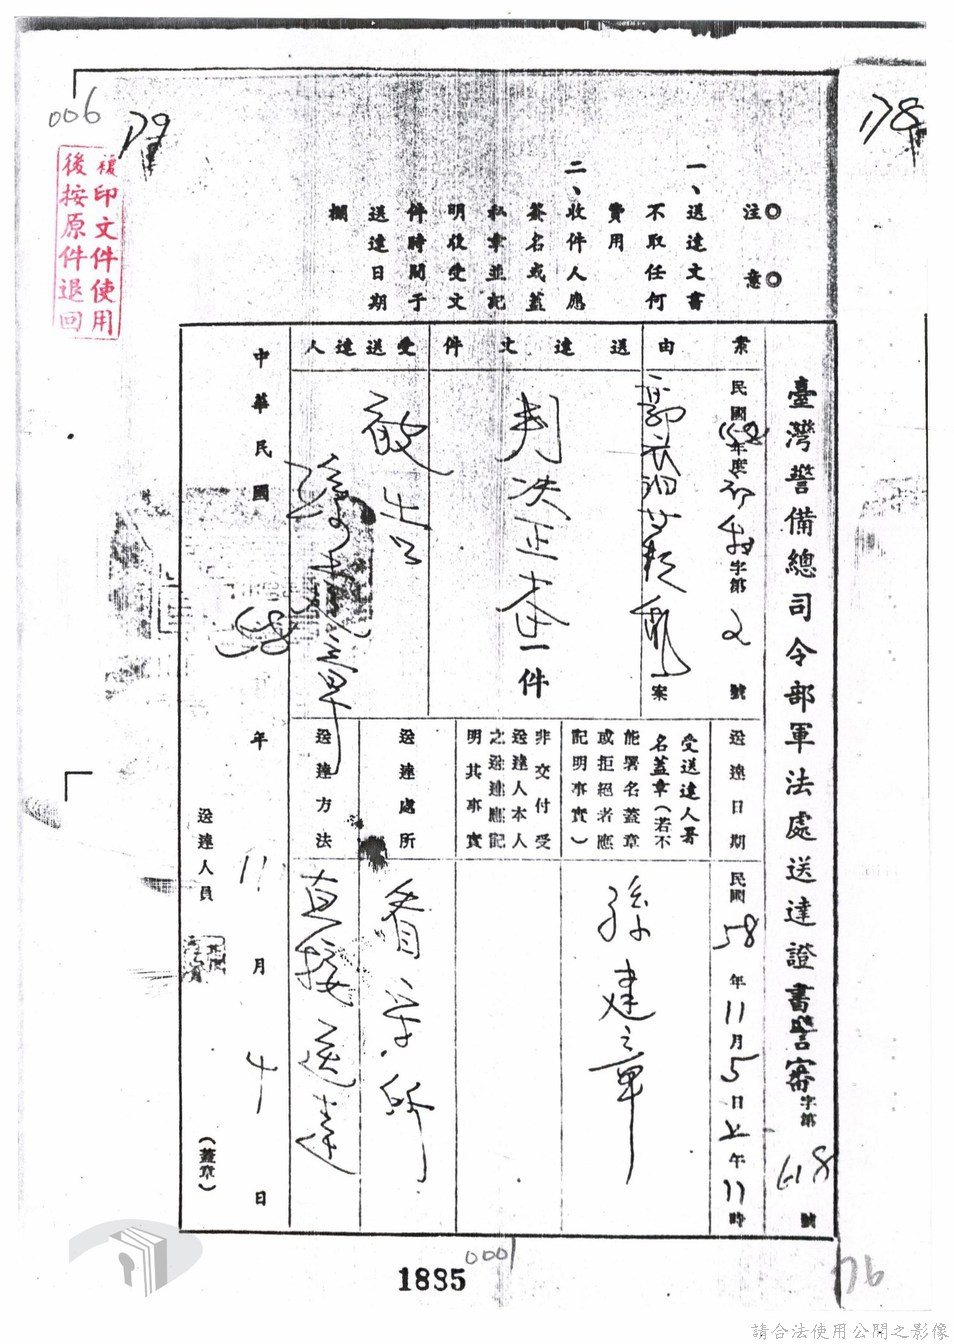 006
179
178
複印文件使用
後按原件退回
◎注意◎
一、送達文書
不取任何
費用
二、收件人應
簽名或蓋
私章並記
明收受文
件時間于
送達日期
欄
臺灣警備總司令部軍法處送達證書警審字第618號
案由
民國58年度初特字第2號
案
送達文件
判決正本一件
受送達人
敏出
孫建章
送達日期
民國58年11月5日上午11時
受送達人署
名蓋章(若不
能署名蓋章
或拒絕者應
記明事實)
孫建章
非交付受
送達人本人
之送達應記
明其事實
送達處所
看守所
送達方法
直接送達
中華民國58年11月4日
送達人員
(蓋章)
0001
1885
76
請合法使用公開之影像